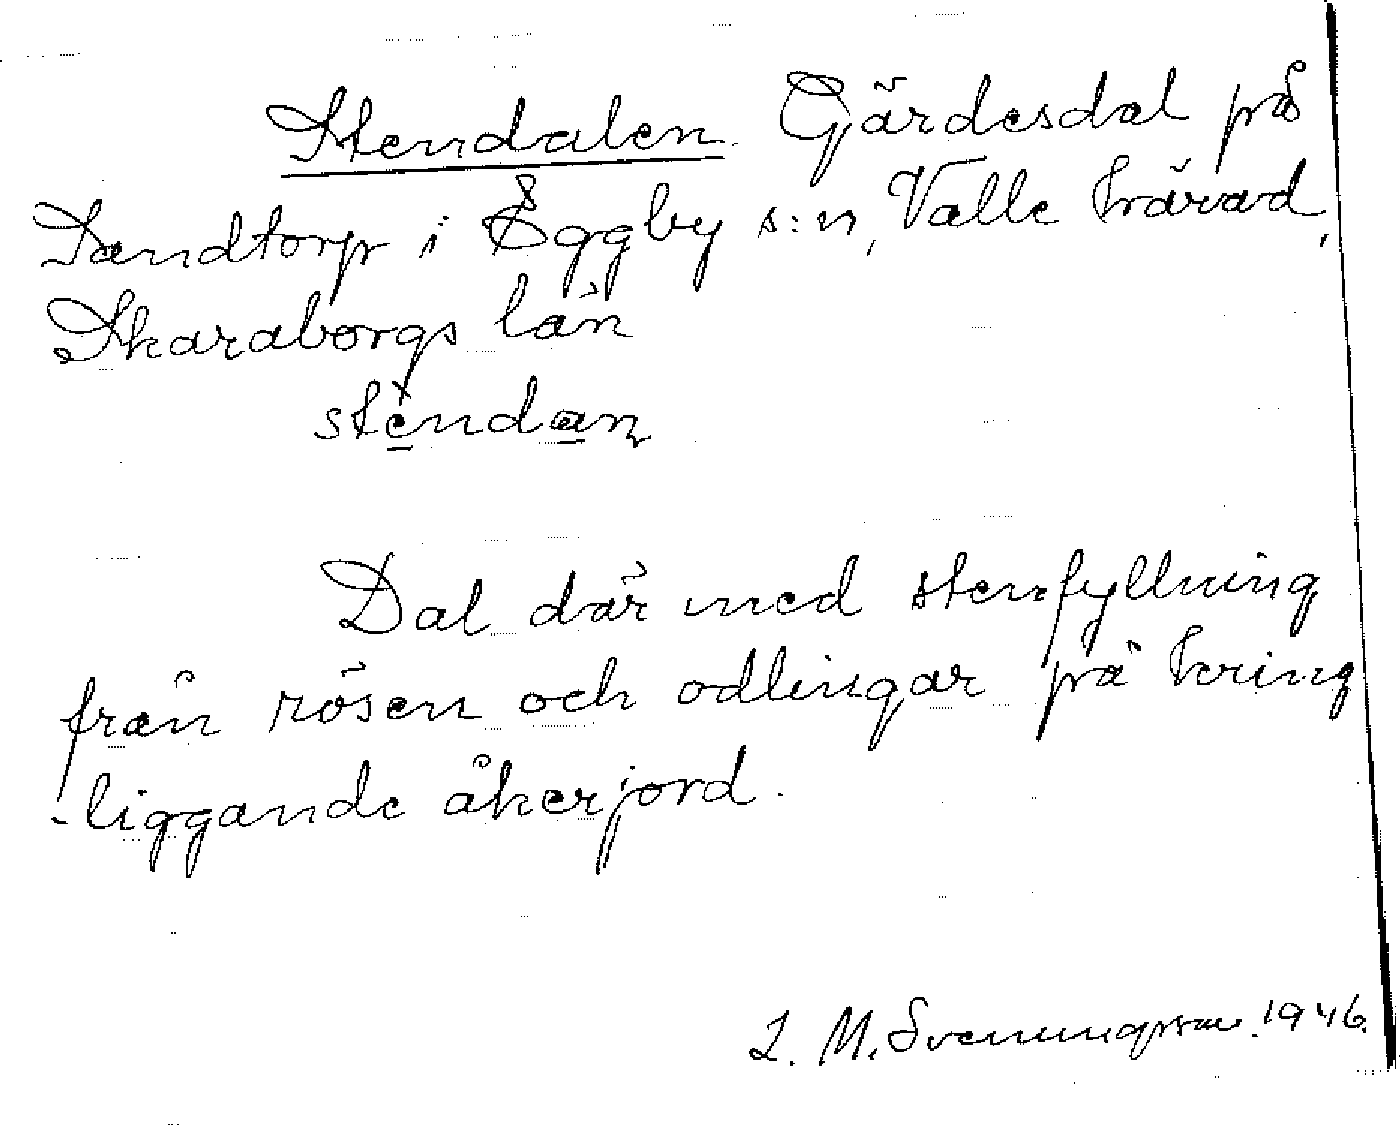 Stendalen. Gärdesdal på
Sandtorp i Eggby s:n, Valle härad,
Skaraborgs län
stèndan
Dal där med stenfyllning
från rösen och odlingar på kring
-liggande åkerjord.
L. M. Svenungsson. 1946.